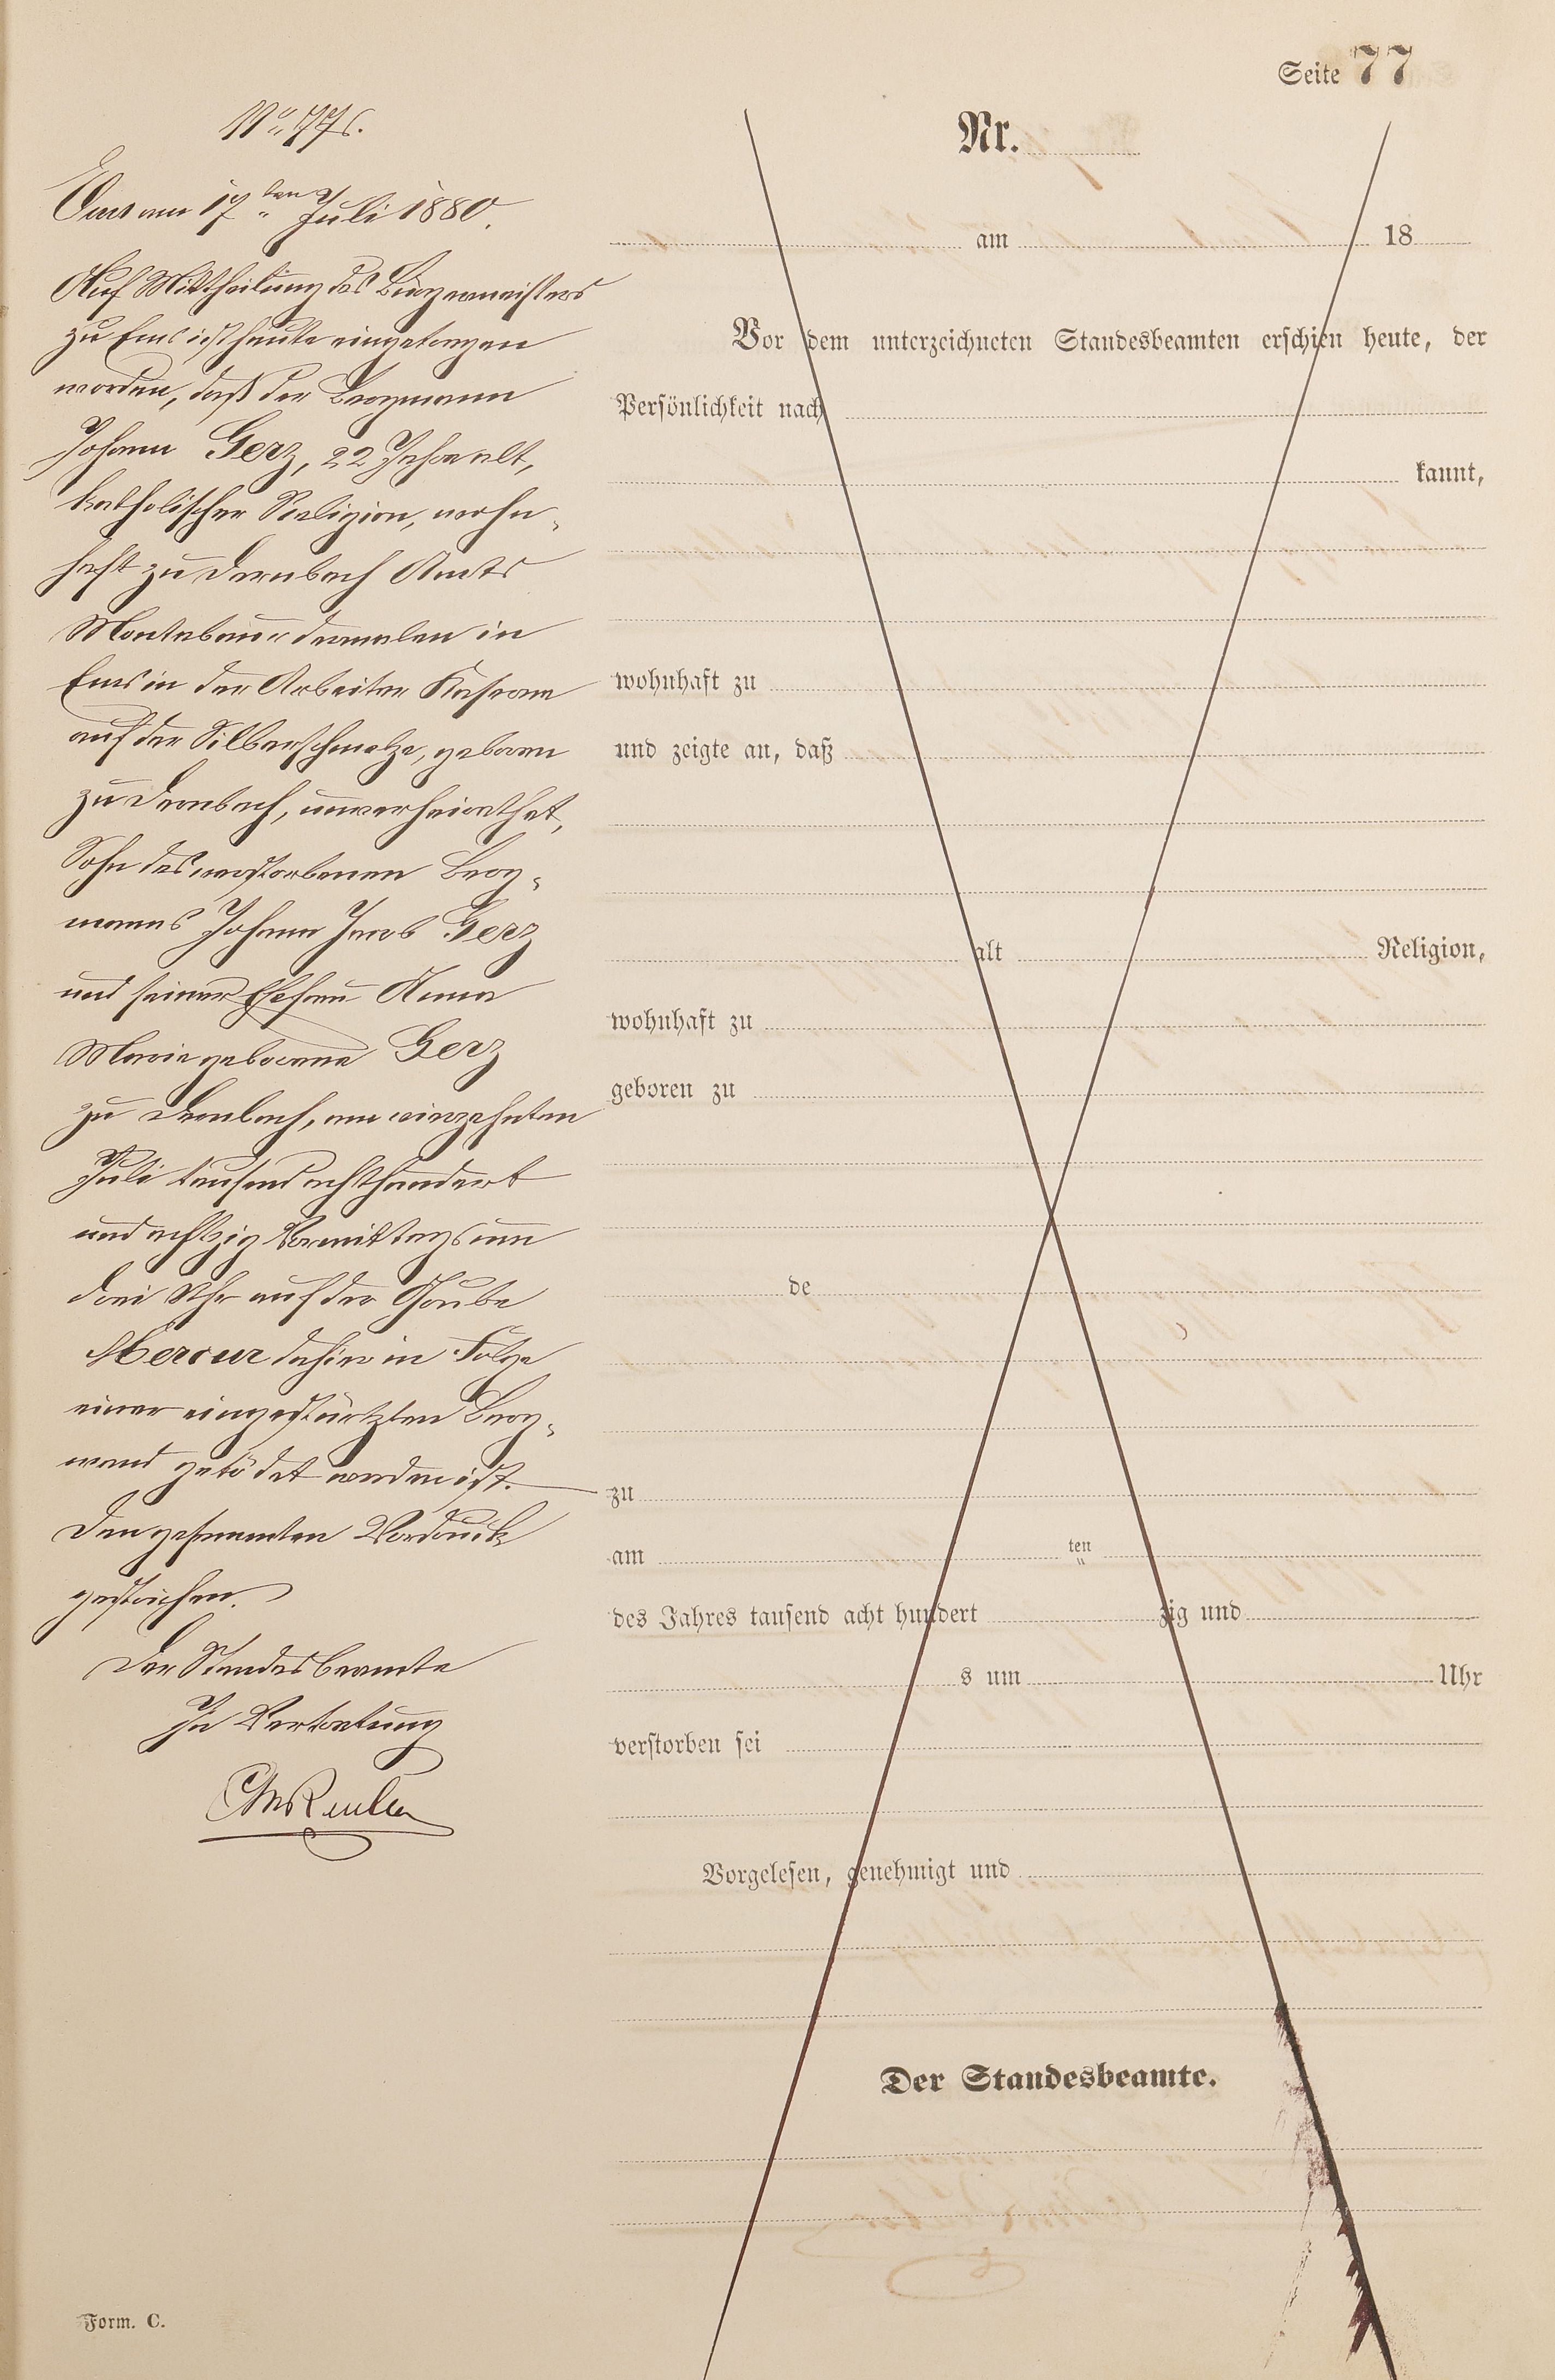 Seite 77
No. 77.
Ems am 17ten Juli 1880.
Auf Mittheilung des Bürgermeisters
zu Ems ist heute eingetragen
worden, daß der Bergmann
Johann Gerz, 22 Jahre alt,
katholischer Religion, wohn-
haft zu Dernbach Amts
Montabaur dermalen in
Ems in der Arbeiter Kaserne
auf der Silberschmelze, geboren
zu Dernbach, unverheirathet,
Sohn des verstorbenen Berg-
manns Johann Jacob Gerz
und seiner Ehefrau Anna
Maria geborene Gerz
zu Dernbach, am vierzehnten
Juli tausend achthundert
und achtzig Vormittags um
drei Uhr auf der Grube
Mercur dahier in Folge
einer eingestürtzten Berg-
wand getödet worden ist.
Den gesammten Vordruck
gestrichen.
Der Standesbeamte
In Vertretung
Form. C.
Nr.
am 18
Vor dem unterzeichneten Standesbeamten erschien heute, der
Persönlichkeit nach
kannt,
wohnhaft zu
und zeigte an, daß
alt Religion,
wohnhaft zu
geboren zu
de
zu
am ten
des Jahres tausend acht hundert zig und
s um Uhr
verstorben sei
Vorgelesen, genehmigt und
Der Standesbeamte.